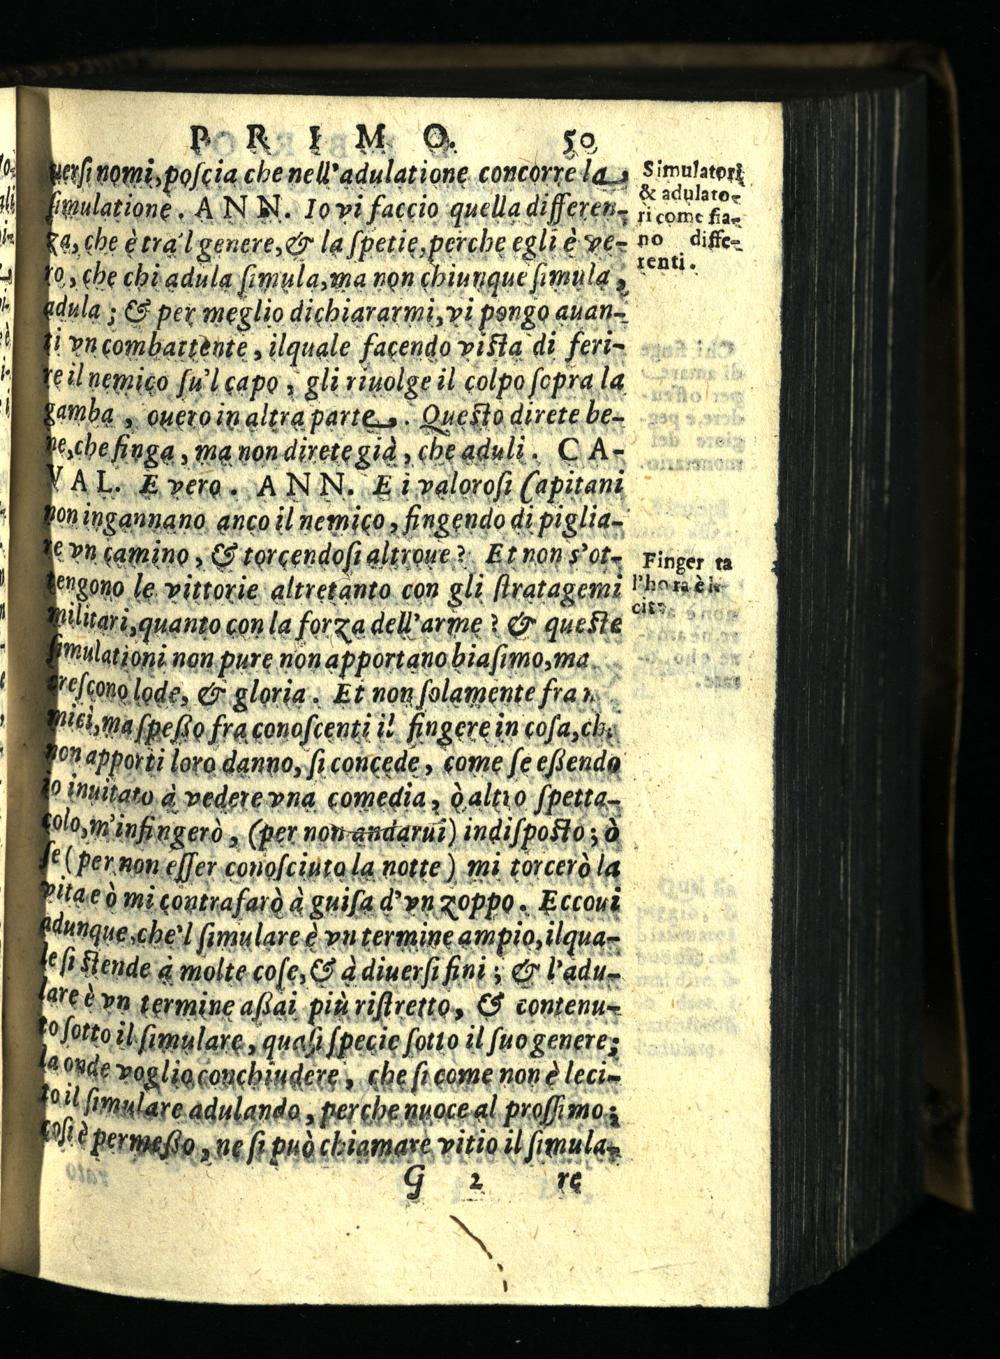 PRIMO. 50
uersi nomi, poscia che nell'adulatione concorre la
simulatione. ANN. Io vi faccio quella differen-
za, che è tra'l genere, & la spetie, perche egli è ve-
ro, che chi adula simula, ma non chiunque simula,
adula; & per meglio dichiararmi, vi pongo auan-
ti vn combattente, ilquale facendo vista di feri-
re il nemico su'l capo, gli riuolge il colpo sopra la
gamba, ouero in altra parte. Questo direte be-
ne, che finga, ma non direte già, che aduli. CA-
VAL. E vero. ANN. E i valorosi Capitani
non ingannano anco il nemico, fingendo di piglia-
re vn camino, & torcendosi altroue? Et non s'ot-
tengono le vittorie altretanto con gli stratagemi
militari, quanto con la forza dell'arme? & queste
simulationi non pure non apportano biasimo, ma
crescono lode, & gloria. Et non solamente fra
mici, ma spesso fra conoscenti il fingere in cosa, ch
non apporti loro danno, si concede, come se essendo
io inuitato à vedere vna comedia, ò altro spetta-
colo, m'infingerò, (per non andarui) indisposto; ò
se (per non esser conosciuto la notte) mi torcerò la
vita e ò mi contrafarò à guisa d'vn zoppo. Eccoui
adunque, che'l simulare è vn termine ampio, ilqua-
le si stende à molte cose, & à diuersi fini; & l'adu-
lare è vn termine assai più ristretto, & contenu-
to sotto il simulare, quasi specie sotto il suo genere;
la onde voglio conchiudere, che si come non è leci-
to il simulare adulando, perche nuoce al prossimo;
cosi è permesso, ne si può chiamare vitio il simula-
G 2 re
Simulatori
& adulato-
ri come sia-
no diffe-
renti.
Finger ta
l'hora è le
cito